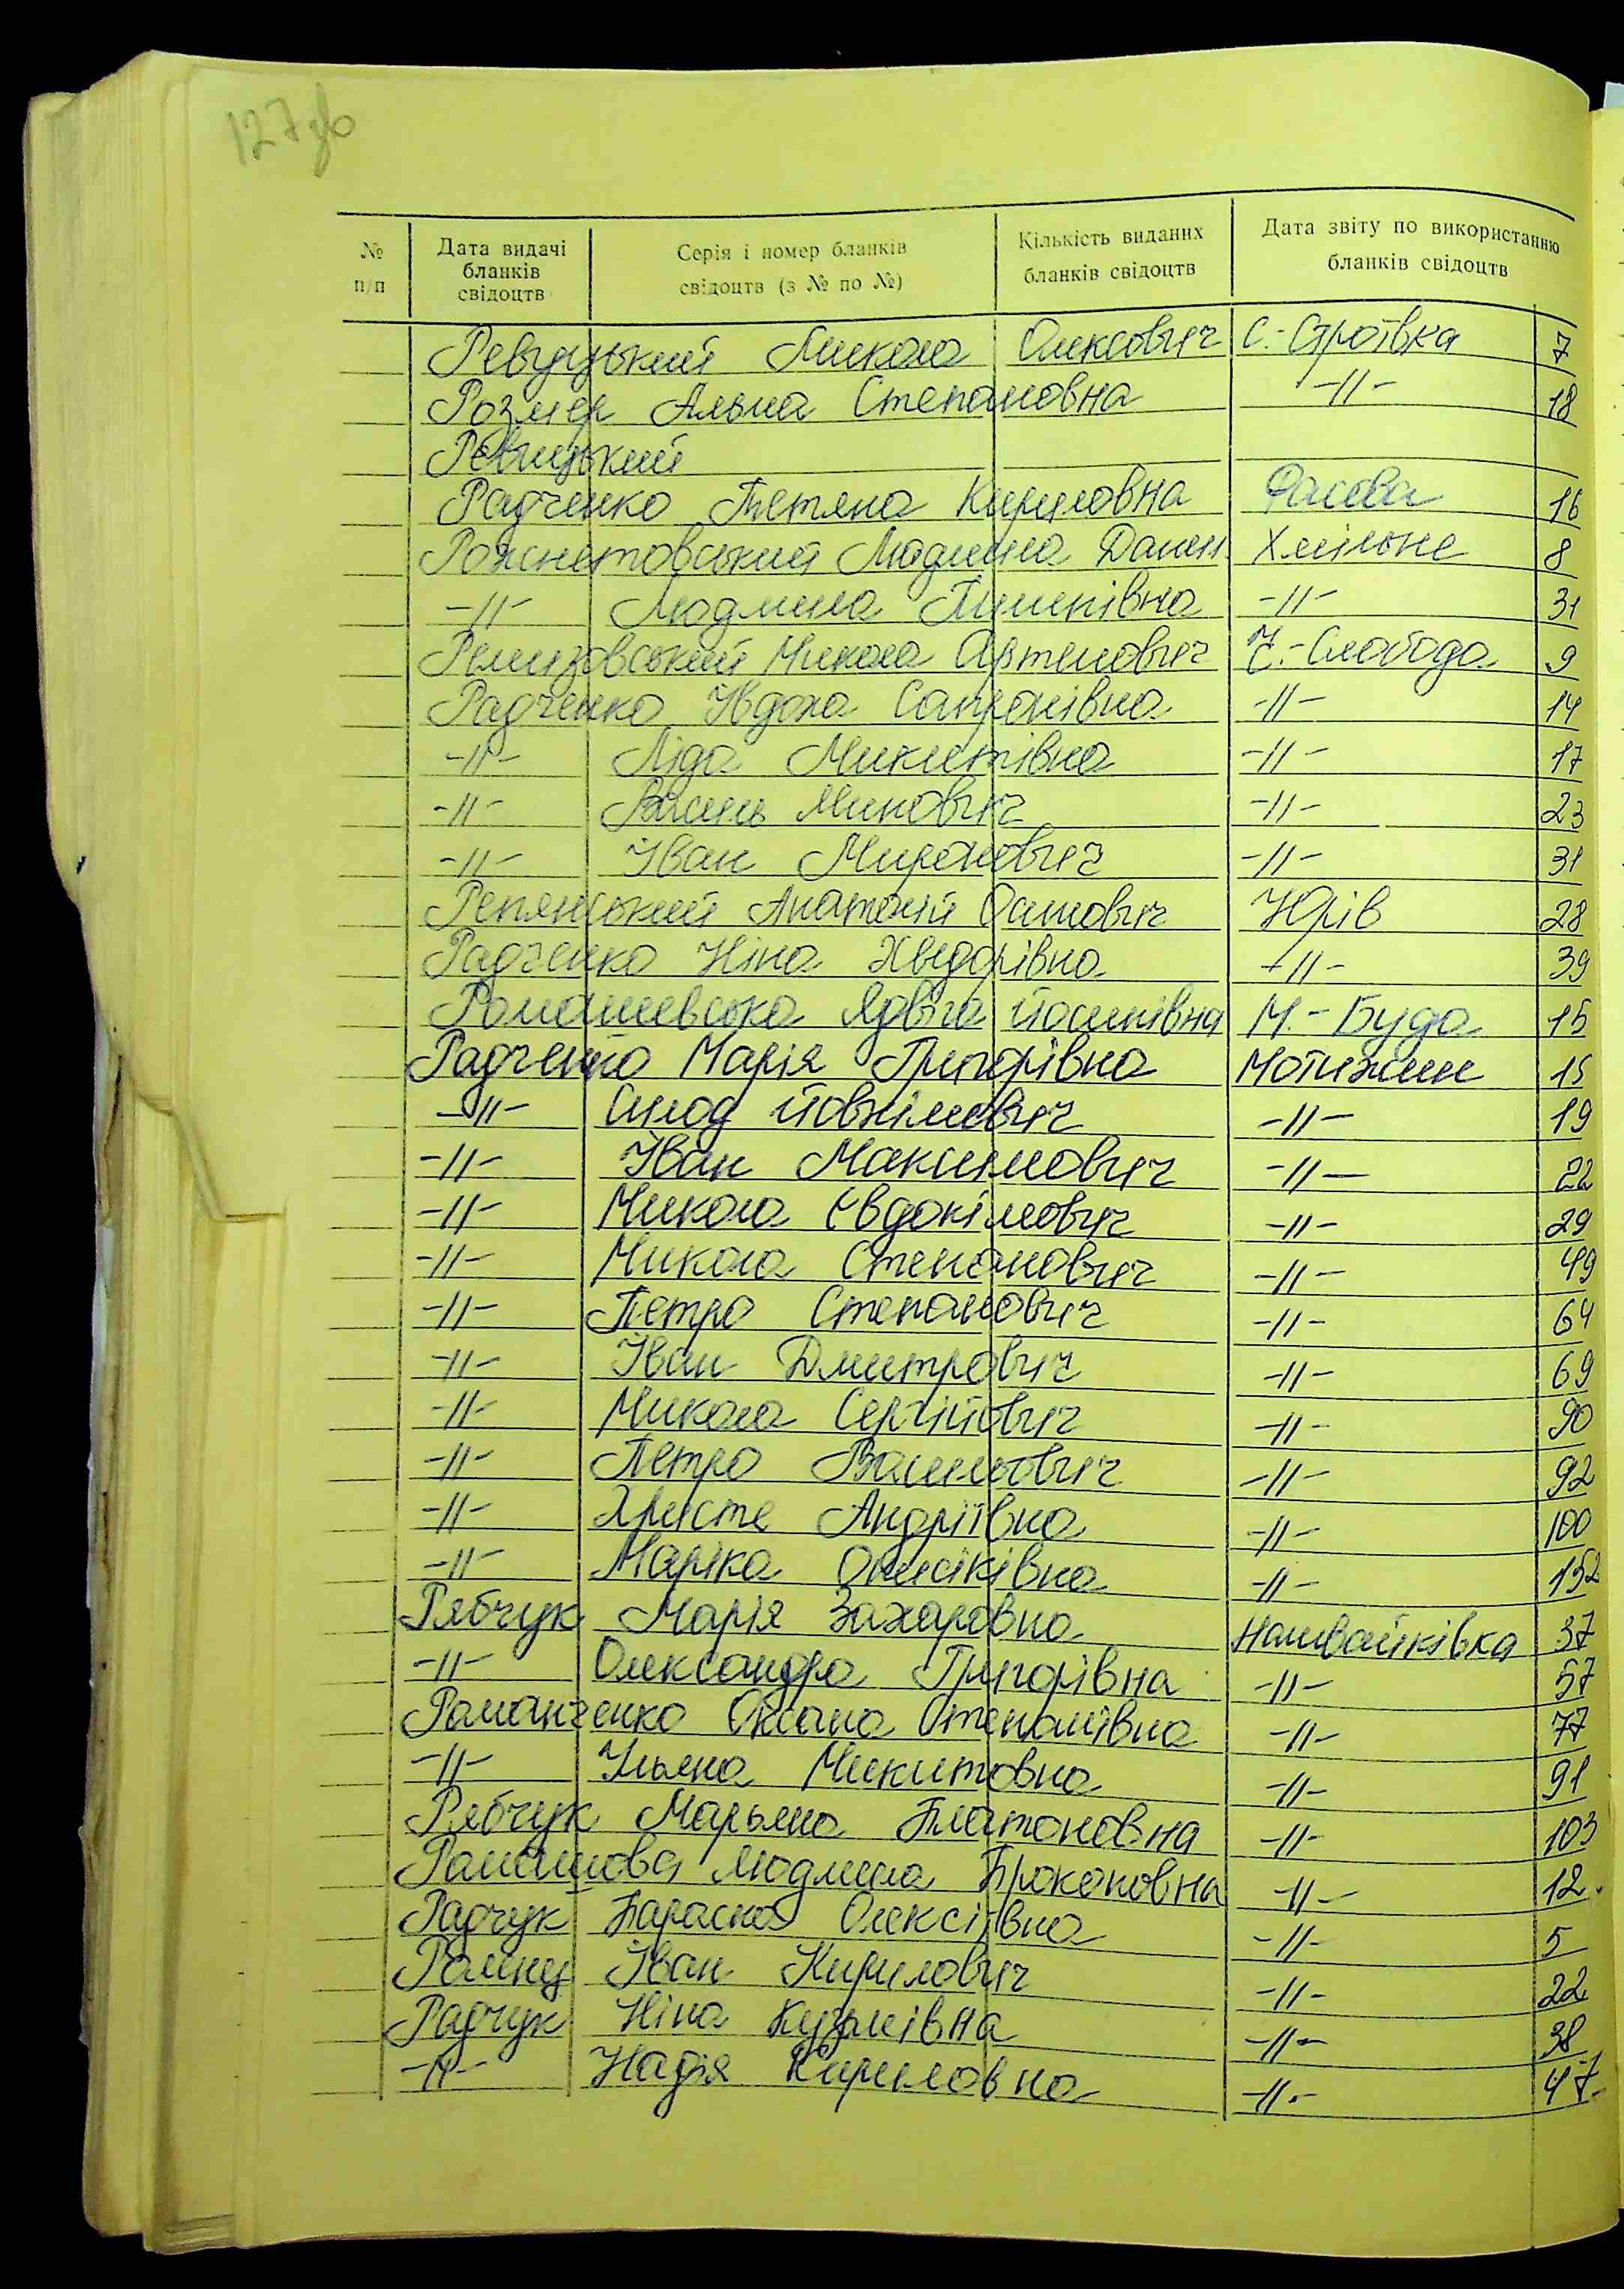 127зв
№ п/п Дата видачі бланків свідоцтв Серія і номер бланків свідоцтв (з № по №) Кількість виданих бланків свідоцтв Дата звіту по використанню бланків свідоцтв
Ревуцький Микола Олексович С.-Строївка 7
Розмер Альма Степановна -//- 18
Ревицький
Радченко Тетяна Кириловна Фасова 16
Рожнетовський Людмила Данил. Хмільне 8
-//- Людмила Пилипівна -//- 31
Ремизовський Микола Артемович Ч.-Слобода 9
Радченко Явдоха Сопронівна -//- 14
-//- Ліда Микитівна -//- 17
-//- Василь Минович -//- 23
-//- Іван Миронович -//- 31
Репянський Анатолій Осипович Юрів 28
Радченко Ніна Хведорівна -//- 39
Ромашевська Ядвіга Йосипівна М.-Буда 15
Радченко Марія Григорівна Мотижин 15
-//- -//- 19
-//- Іван Максимович -//- 22
-//- Микола Євдокімович -//- 29
-//- Микола Степанович -//- 49
-//- Петро Степанович -//- 64
-//- Іван Дмитрович -//- 69
-//- Микола Сергійович -//- 90
-//- Петро Васильович -//- 92
-//- Христе Андріївна -//- 100
-//- Маріка -//- 152
Рябчук Марія Захаровна Наливайківка 37
-//- Олександра Григорівна -//- 57
Романченко Оксана Степанівна -//- 77
-//- Ульяна Микитовна -//- 91
Рябчук Марьяна Платоновна -//- 103
Ромашова Людмила Прокоповна -//- 12
Радчук Параска Олексіївна -//- 5
Іван Кирилович -//- 22
Радчук Ніна Кузмівна -//- 38
-//- Надія Кириловна -//- 47